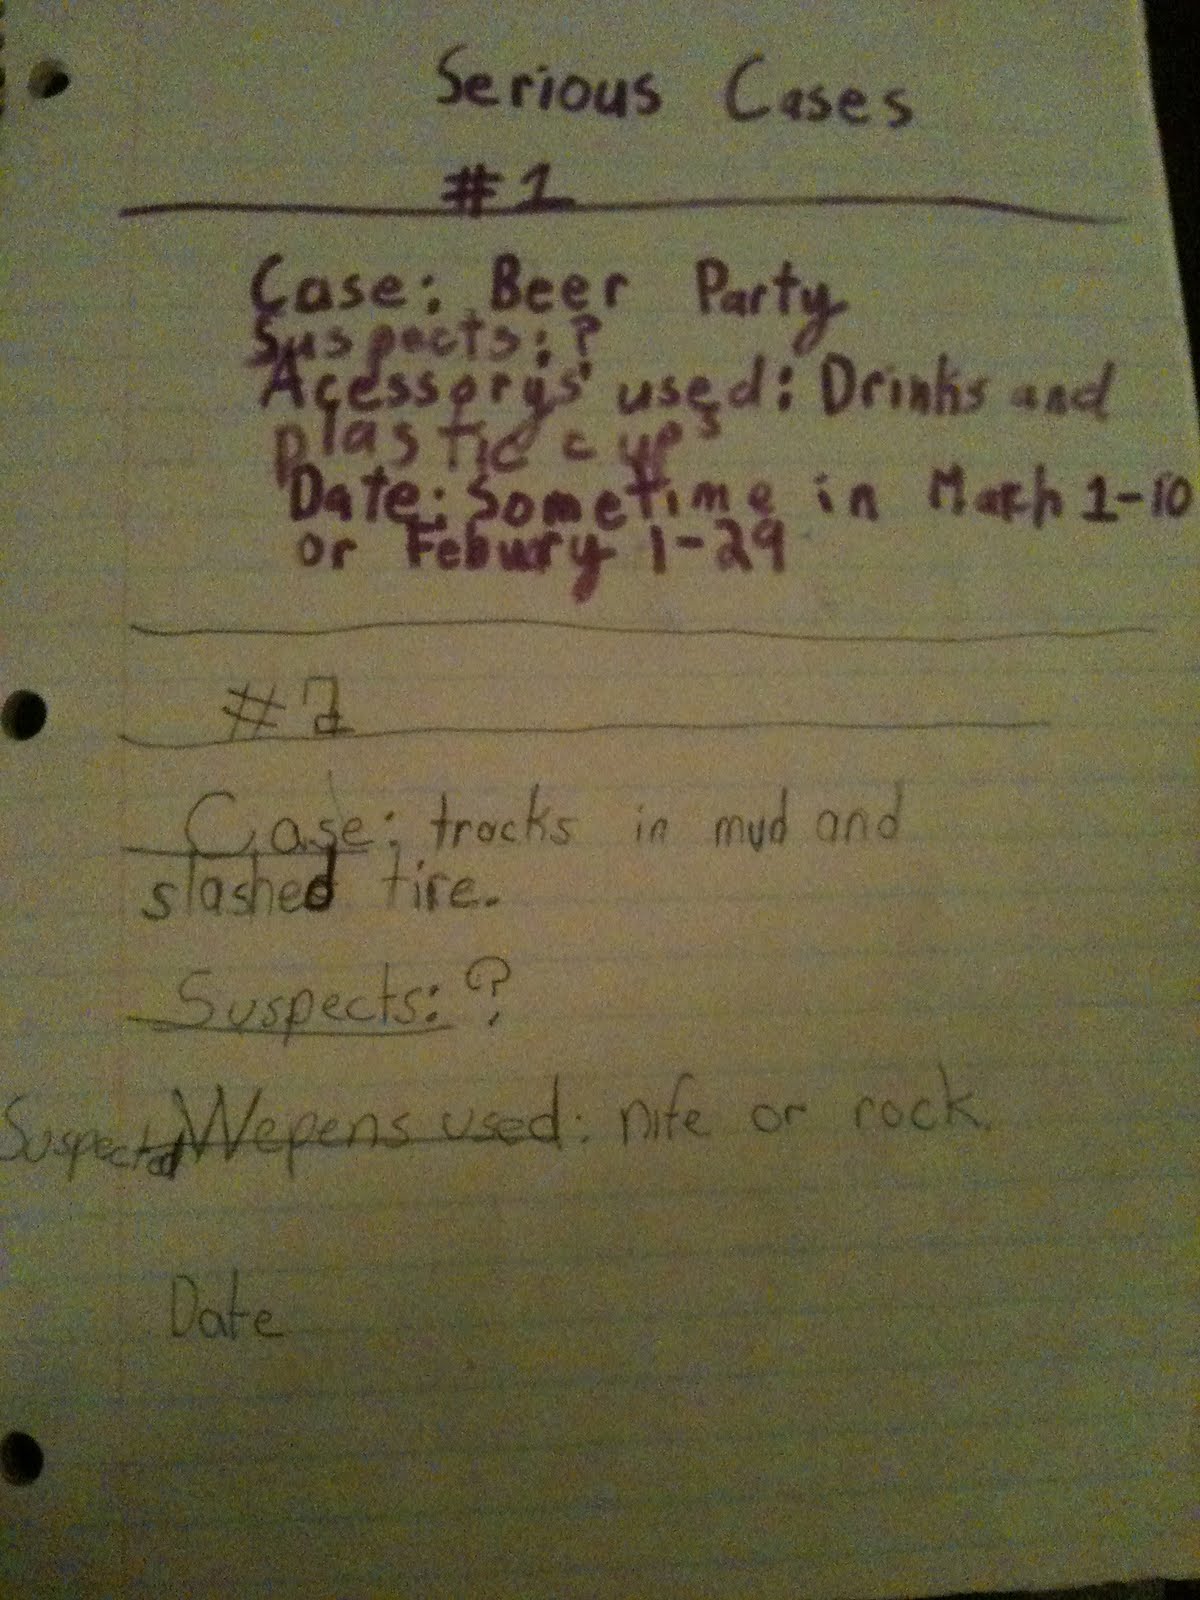 Serious Cases
#1
Case: Beer Party
Suspects: ?
Acessorys' used: Drinks and
plastic cups
Date: Sometime in March 1-10
or Febuary 1-29
#2
Case: tracks in mud and
slashed tire.
Suspects: ?
Suspected Wepens used: nife or rock.
Date